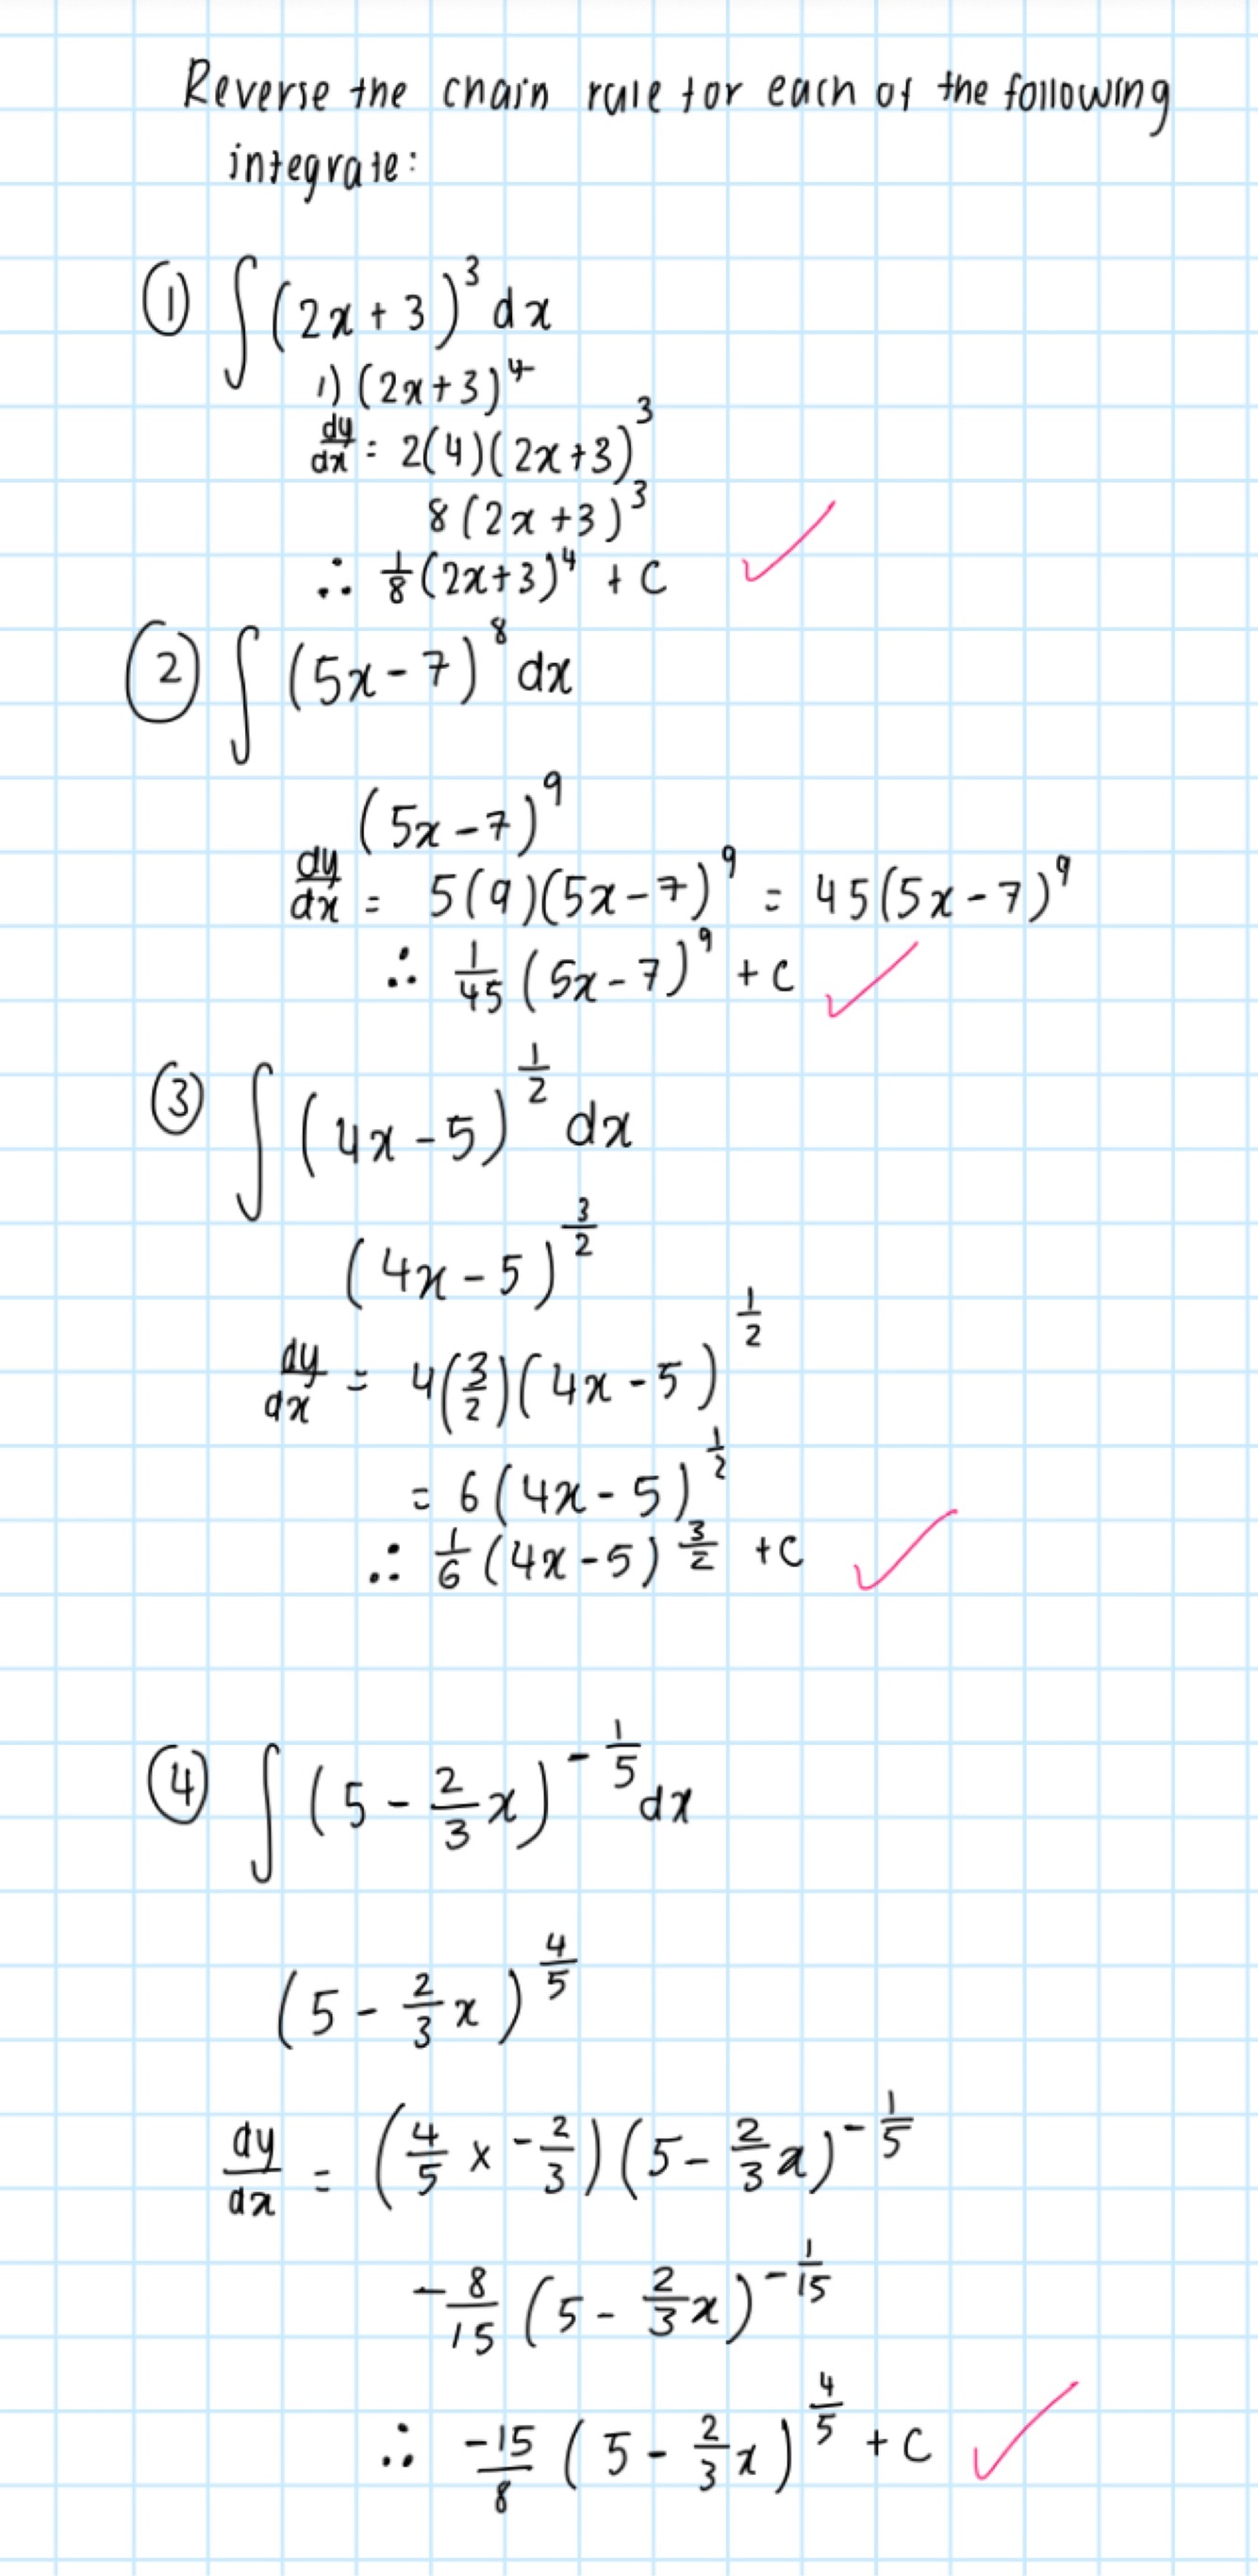 Reverse the chain rule for each of the following
integrate:
① ∫(2x+3)³ dx
1) (2x+3)⁴
dy/dx = 2(4)(2x+3)³
8(2x+3)³
∴ 1/8 (2x+3)⁴ + C
② ∫(5x-7)⁸ dx
(5x-7)⁹
dy/dx = 5(9)(5x-7)⁹ = 45(5x-7)⁹
∴ 1/45 (5x-7)⁹ + C
③ ∫(4x-5)^(1/2) dx
(4x-5)^(3/2)
dy/dx = 4(3/2)(4x-5)^(1/2)
= 6(4x-5)^(1/2)
∴ 1/6 (4x-5)^(3/2) + C
④ ∫(5 - 2/3 x)^(-1/5) dx
(5 - 2/3 x)^(4/5)
dy/dx = (4/5 × -2/3)(5 - 2/3 x)^(-1/5)
-8/15 (5 - 2/3 x)^(-1/15)
∴ -15/8 (5 - 2/3 x)^(4/5) + C